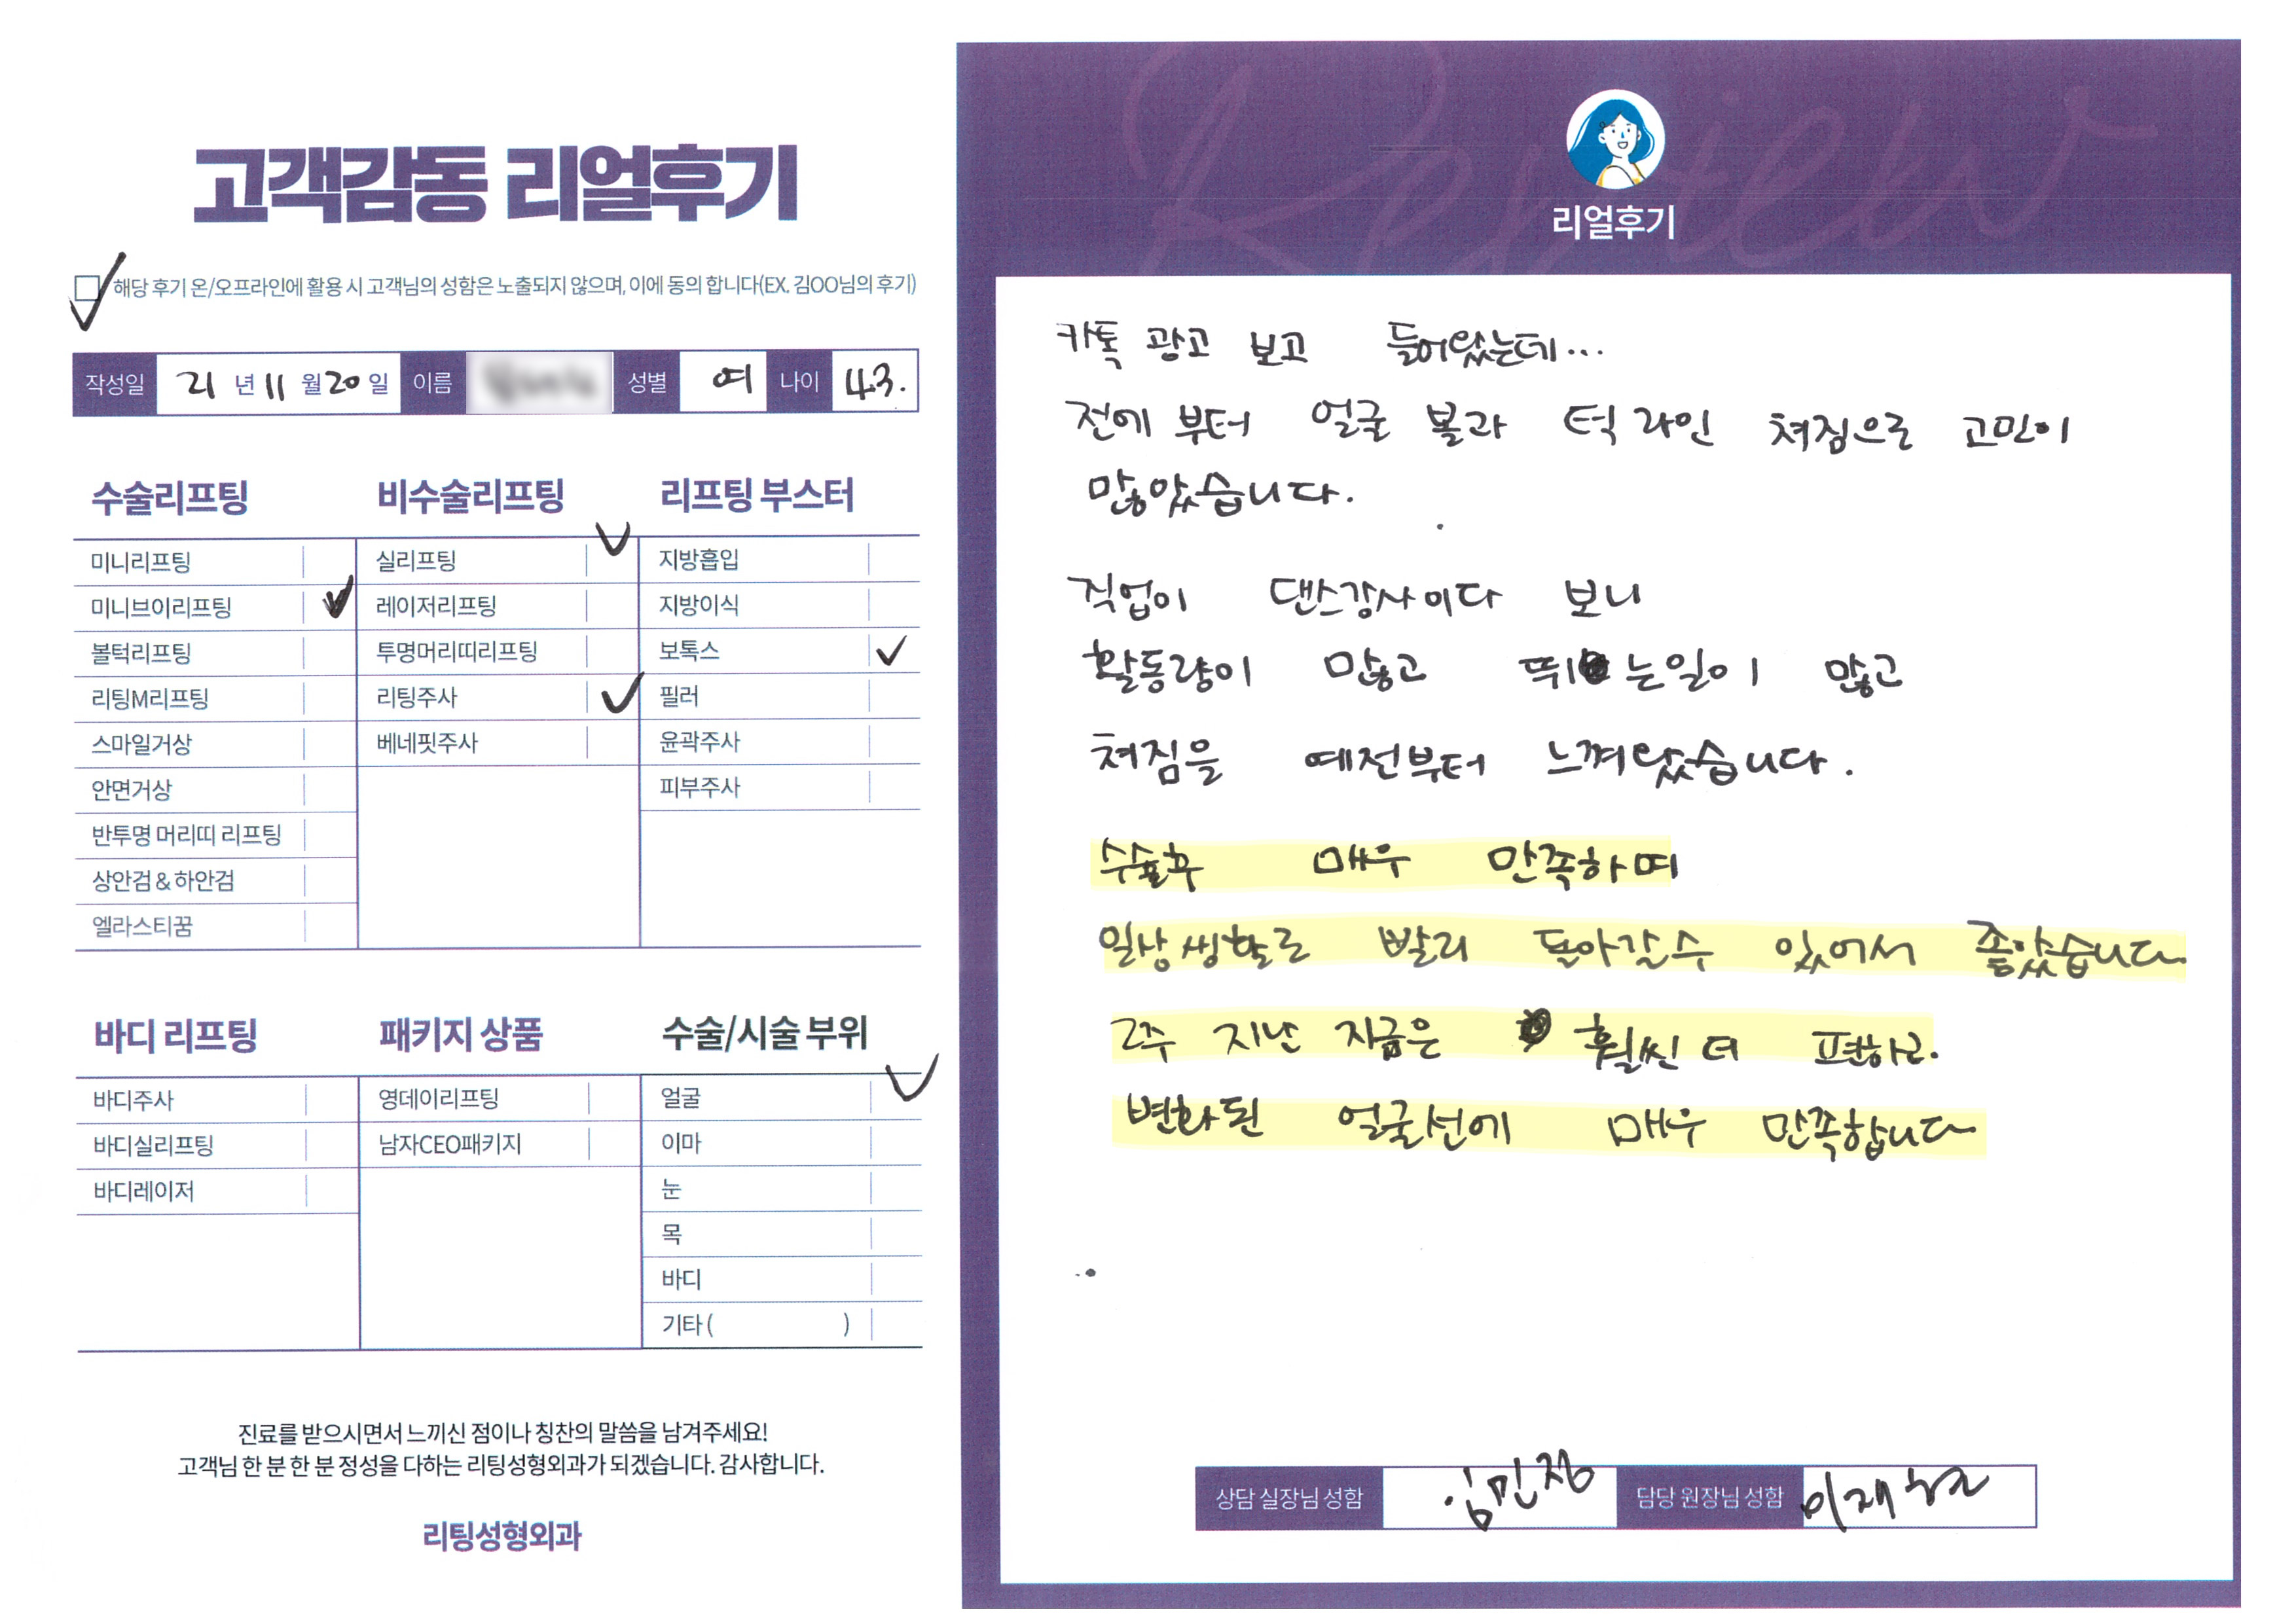 고객감동 리얼후기
해당 후기 온/오프라인에 활용 시 고객님의 성함은 노출되지 않으며, 이에 동의 합니다(EX. 김OO님의 후기)
작성일 21 년 11 월 20 일 이름 성별 여 나이 43.
수술리프팅
미니리프팅
미니브이리프팅
볼턱리프팅
리팅M리프팅
스마일거상
안면거상
반투명 머리띠 리프팅
상안검 & 하안검
엘라스티꿈
비수술리프팅
실리프팅
레이저리프팅
투명머리띠리프팅
리팅주사
베네핏주사
리프팅 부스터
지방흡입
지방이식
보톡스
필러
윤곽주사
피부주사
바디 리프팅
바디주사
바디실리프팅
바디레이저
패키지 상품
영데이리프팅
남자CEO패키지
수술/시술 부위
얼굴
이마
눈
목
바디
기타 ( )
진료를 받으시면서 느끼신 점이나 칭찬의 말씀을 남겨주세요!
고객님 한 분 한 분 정성을 다하는 리팅성형외과가 되겠습니다. 감사합니다.
리팅성형외과
Review
리얼후기
카톡 광고 보고 들어왔는데...
전에 부터 얼굴 볼과 턱 라인 쳐짐으로 고민이
많았습니다.
직업이 댄스강사이다 보니
활동량이 많고 뛰는일이 많고
쳐짐을 예전부터 느껴왔습니다.
수술후 매우 만족하며
일상생활로 빨리 돌아갈수 있어서 좋았습니다
2주 지난 지금은 훨씬 더 편하고.
변화된 얼굴선에 매우 만족합니다
상담 실장님 성함 김민정 담당 원장님 성함 이재